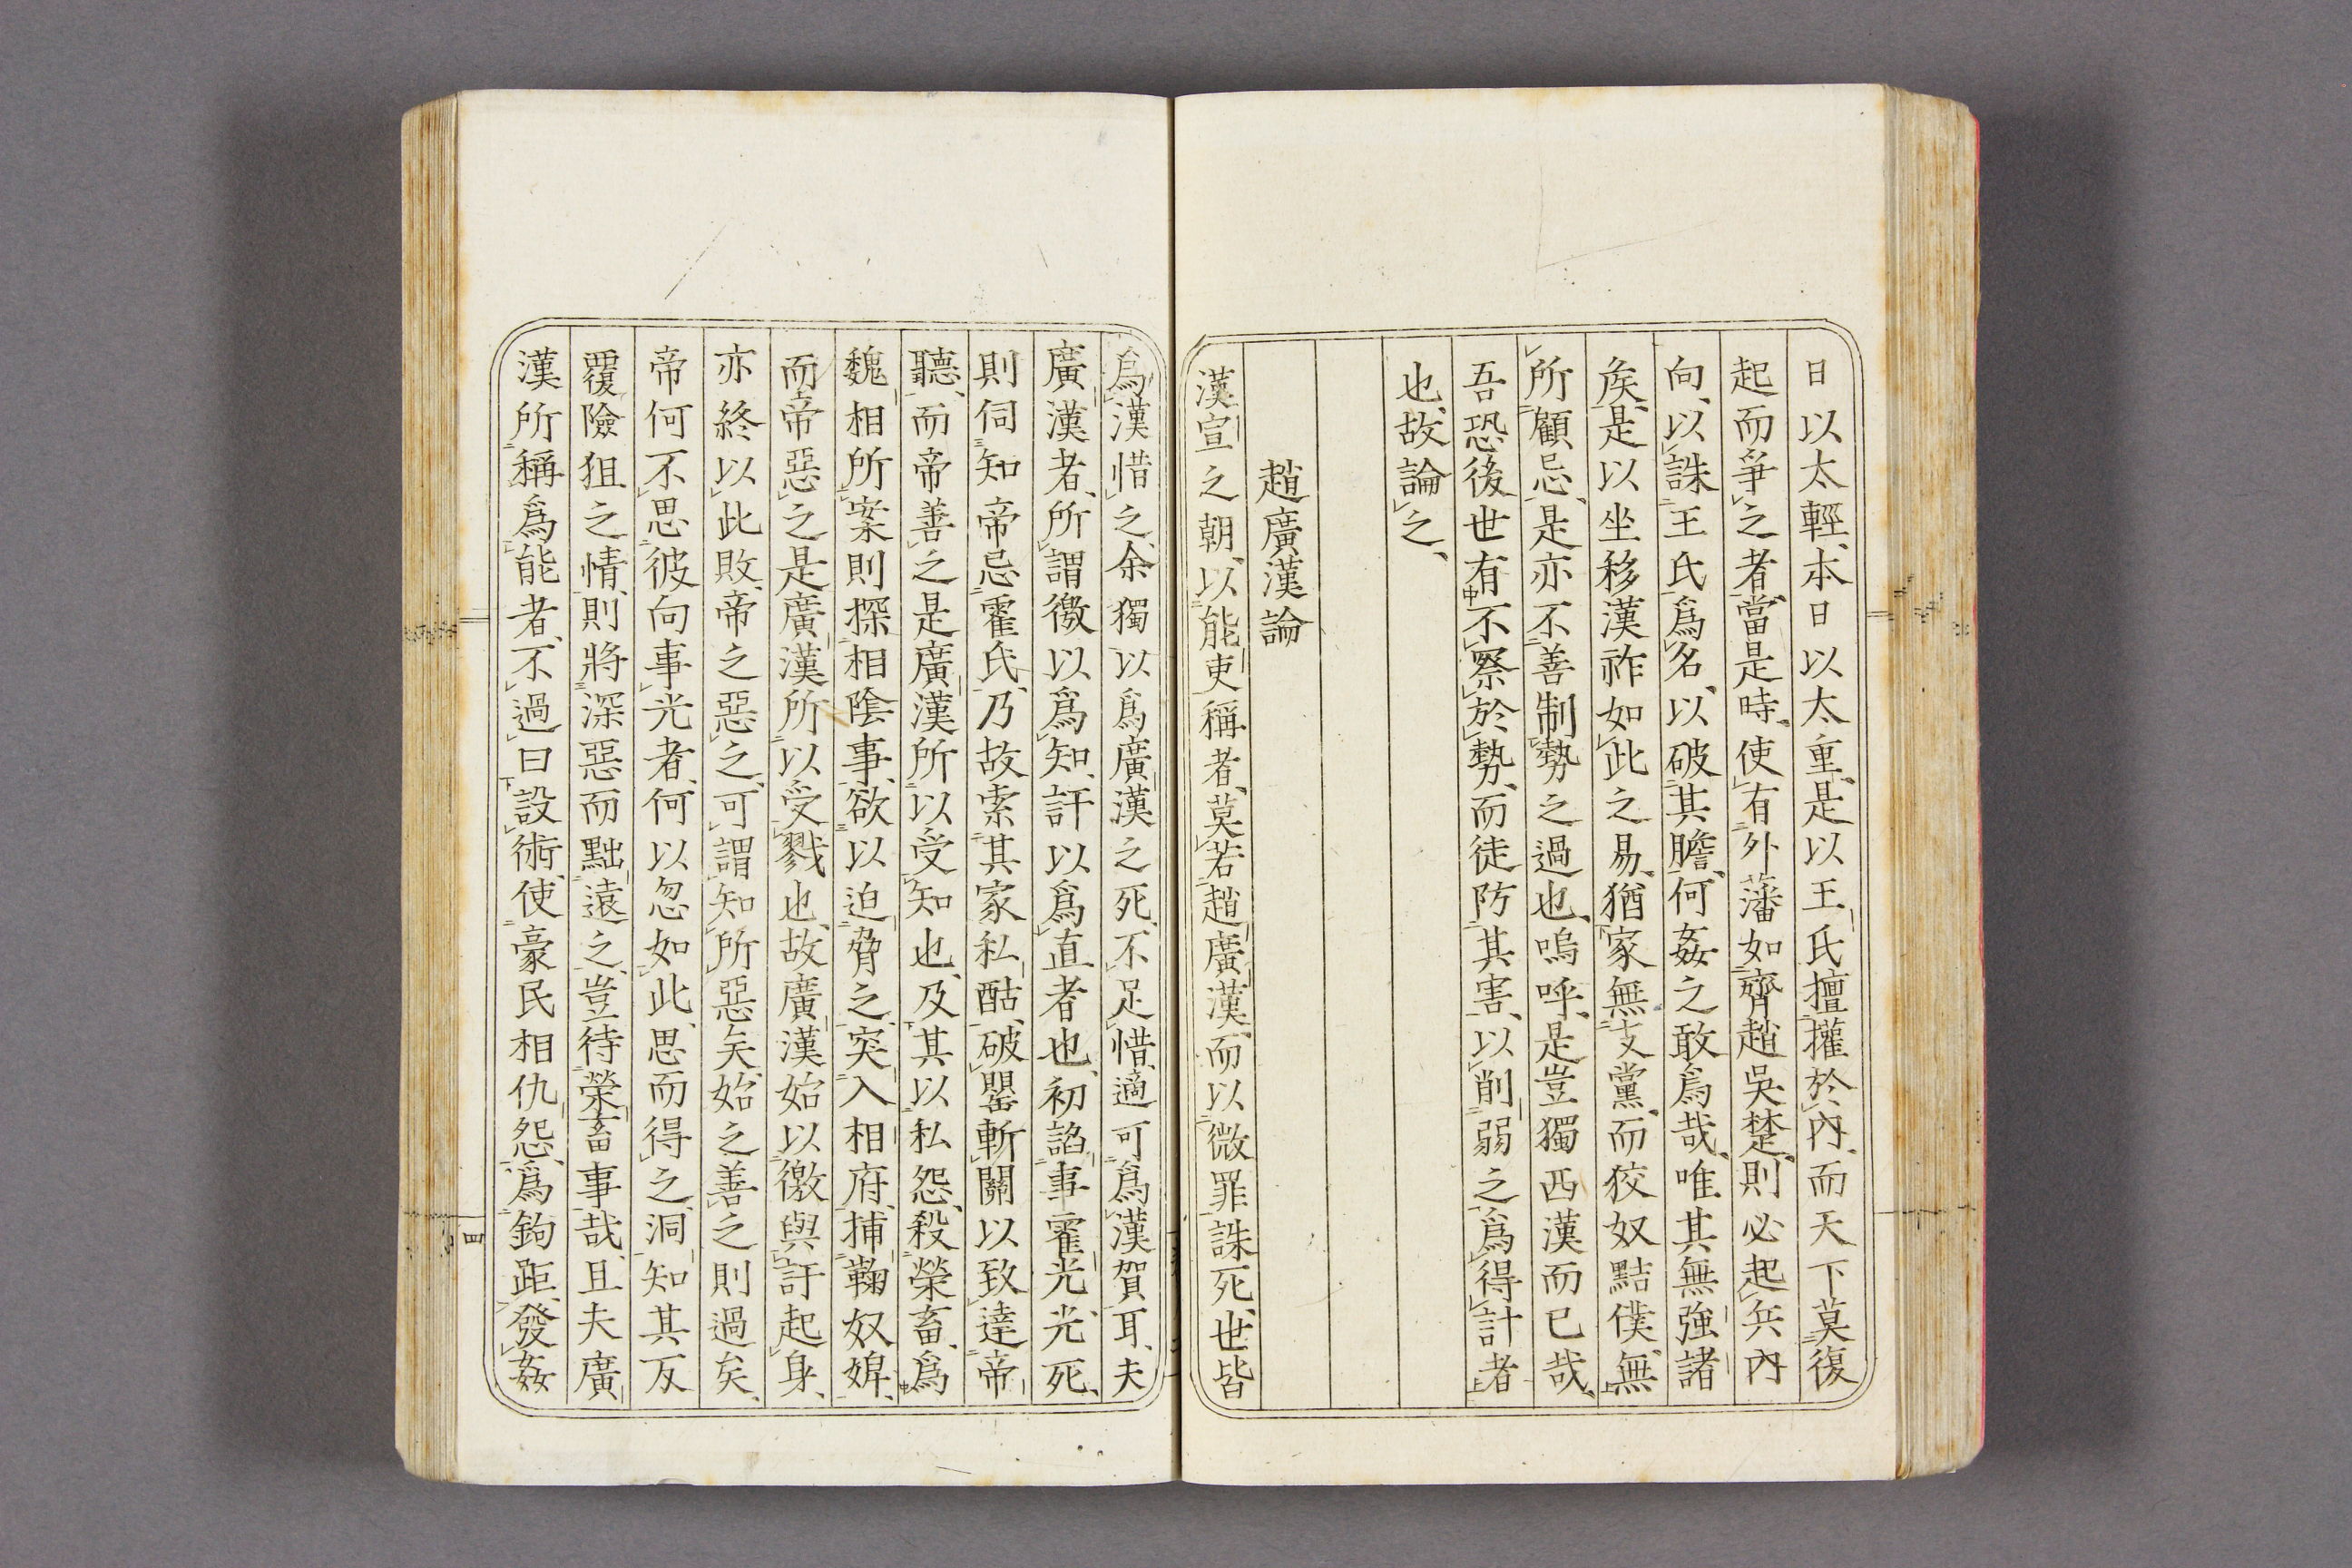 日以太輕、本日以太重、是以王氏擅權於內、而天下莫復
起而爭之者、當是時、使有外藩如齊趙吳楚、則必起兵內
向、以誅王氏爲名、以破其膽、何姦之敢爲哉、唯其無強諸
矦、是以坐移漢祚如此之易、猶家無支黨、而狡奴黠僕、無
所顧忌、是亦不善制勢之過也、嗚呼、是豈獨西漢而已哉、
吾恐後世有不察於勢、而徒防其害、以削弱之爲得計者
也、故論之、
趙廣漢論
漢宣之朝、以能吏稱者、莫若趙廣漢、而以微罪誅死、世皆
爲漢惜之、余獨以爲廣漢之死、不足惜、適可爲漢賀耳、夫
廣漢者、所謂徼以爲知、訐以爲直者也、初諂事霍光、光死、
則伺知帝忌霍氏、乃故索其家私酤、破罌斬關以致達帝
聽、而帝善之、是廣漢所以受知也、及其以私怨、殺榮畜、爲
魏相所案、則探相陰事、欲以迫脅之、突入相府、捕鞠奴婢、
而帝惡之、是廣漢所以受戮也、故廣漢始以徼與訐起身、
亦終以此敗、帝之惡之、可謂知所惡矣、始之善之則過矣、
帝何不思彼向事光者、何以忽如此、思而得之、洞知其反
覆險狙之情、則將深惡而黜遠之、豈待榮畜事哉、且夫廣
漢所稱爲能者、不過曰設術、使豪民相仇怨、爲鉤距、發姦
四